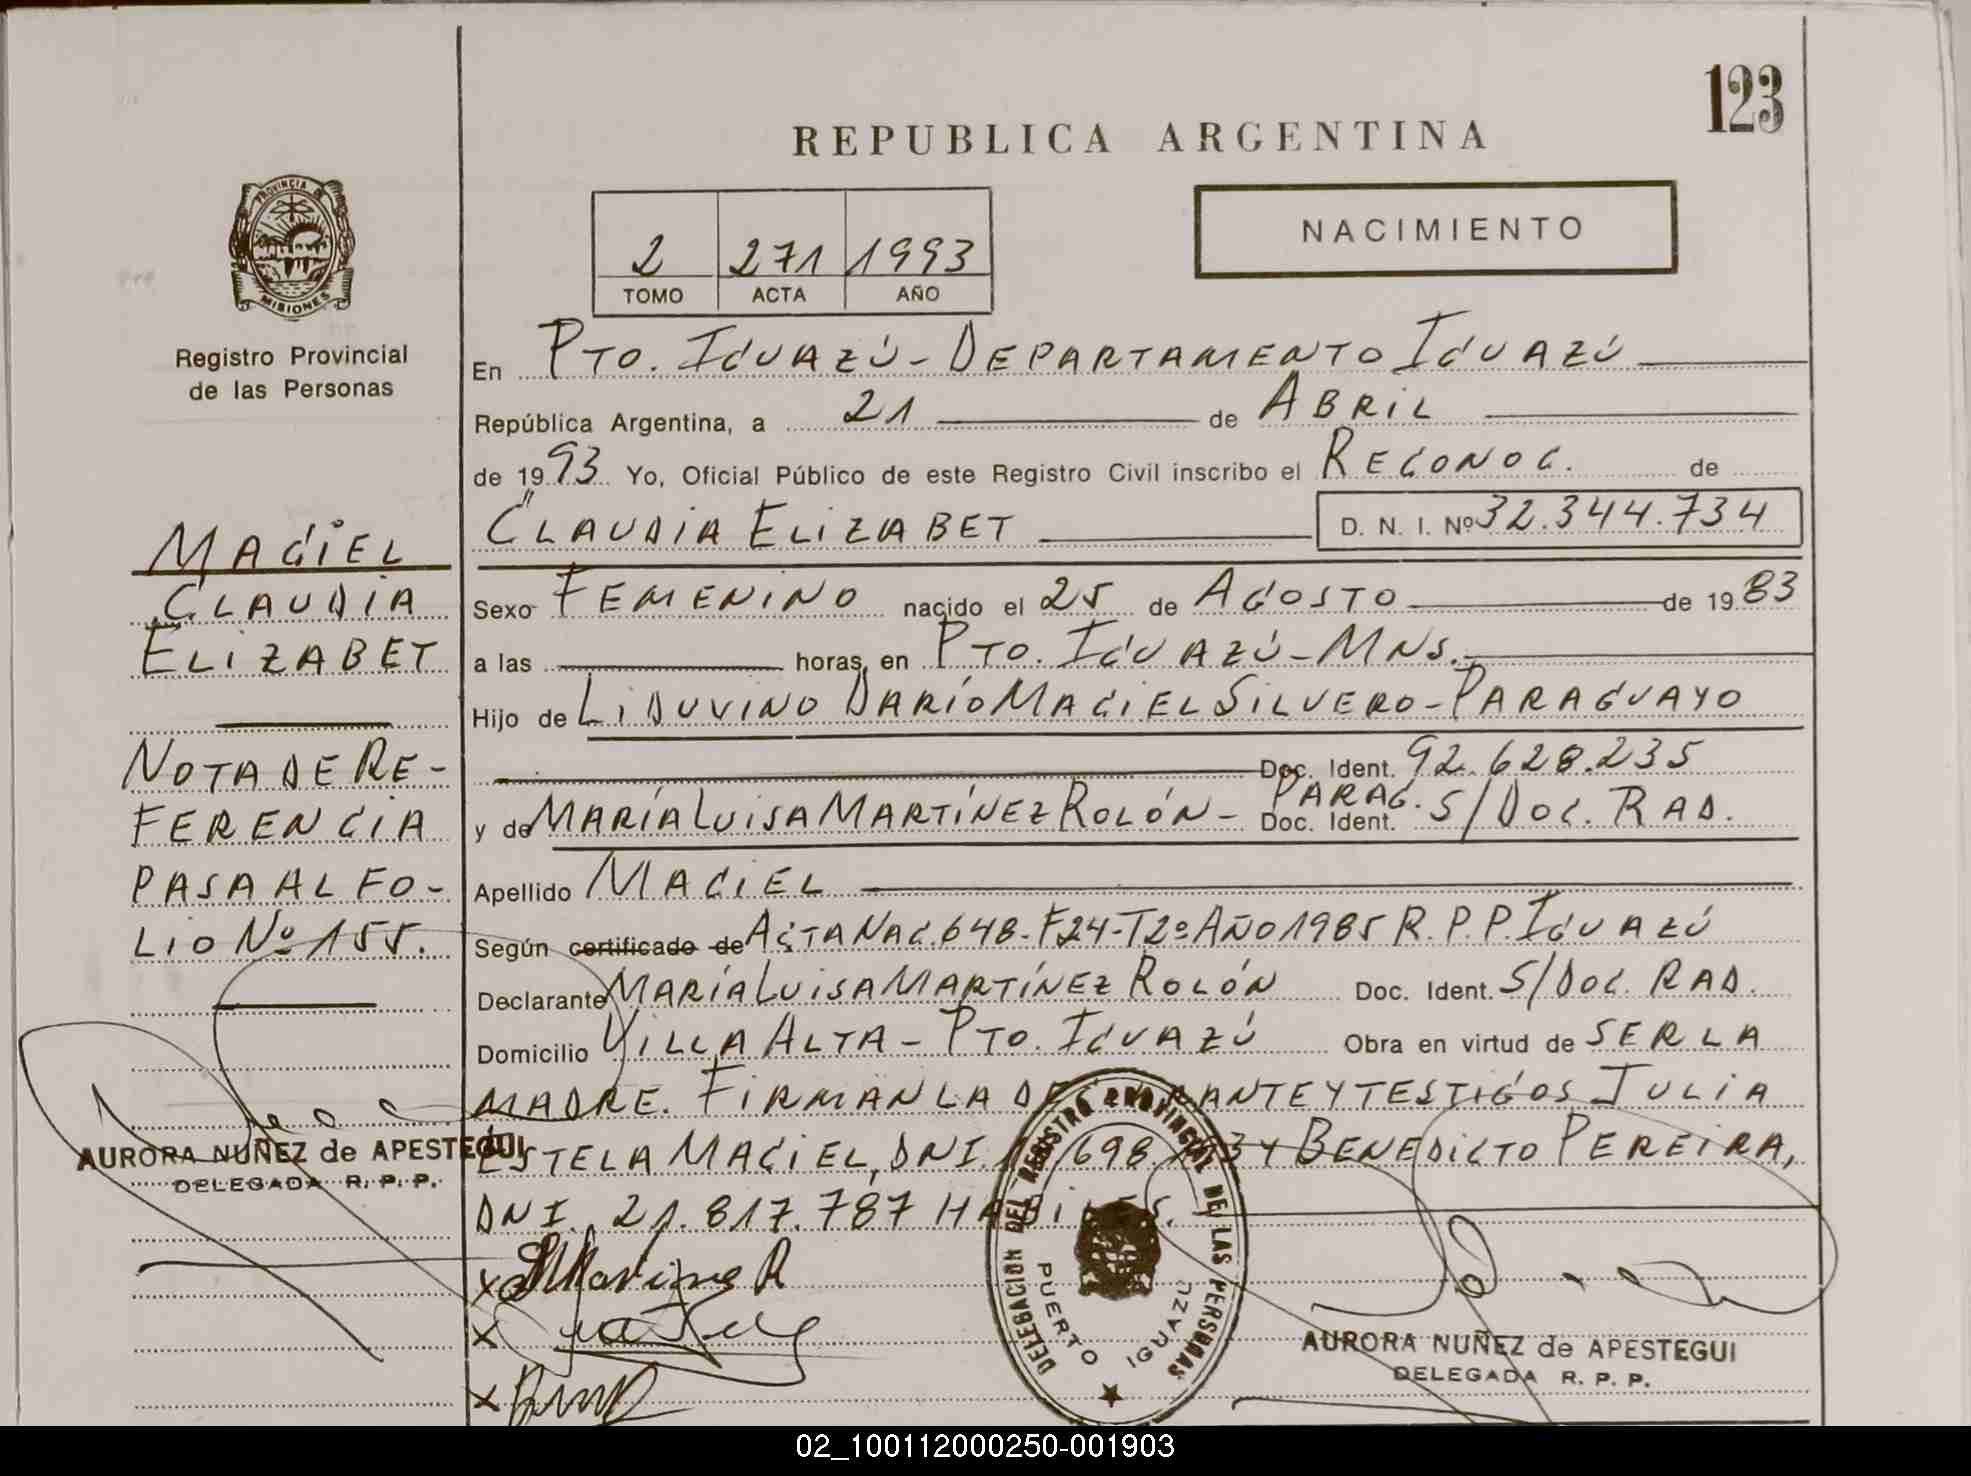 123
REPUBLICA ARGENTINA
PROVINCIA DE
MISIONES
Registro Provincial
de las Personas
2 271 1993
TOMO ACTA AÑO
NACIMIENTO
En PTO. IGUAZÚ - DEPARTAMENTO IGUAZÚ
República Argentina, a 21 de ABRIL
de 1993 Yo, Oficial Público de este Registro Civil inscribo el RECONOC. de
CLAUDIA ELIZABET D. N. I. Nº 32.344.734
Sexo FEMENINO nacido el 25 de AGOSTO de 1983
a las horas, en PTO. IGUAZÚ - MNS.
Hijo de LIDUVINO DARÍO MACIEL SILVERO - PARAGUAYO
Doc. Ident. 92.628.235
y de MARÍA LUISA MARTÍNEZ ROLÓN - PARAG. Doc. Ident. S/DOC. RAD.
Apellido MACIEL
Según certificado de ACTA NAC. 648 - F24 - T2º AÑO 1985 R.P.P. IGUAZÚ
Declarante MARÍA LUISA MARTÍNEZ ROLÓN Doc. Ident. S/DOC. RAD.
Domicilio VILLA ALTA - PTO. IGUAZÚ Obra en virtud de SER LA
MADRE. FIRMAN LA DECLARANTE Y TESTIGOS JULIA
ESTELA MACIEL, DNI. 698 Y BENEDICTO PEREIRA,
DNI. 21.817.787 HABILES.
MACIEL
CLAUDIA
ELIZABET
NOTA DE RE-
FERENCIA
PASA AL FO-
LIO Nº 155.
AURORA NUÑEZ de APESTEGUI
DELEGADA R. P. P.
DELEGACION DEL REGISTRO PROVINCIAL DE LAS PERSONAS
PUERTO IGUAZU
AURORA NUÑEZ de APESTEGUI
DELEGADA R. P. P.
02_100112000250-001903